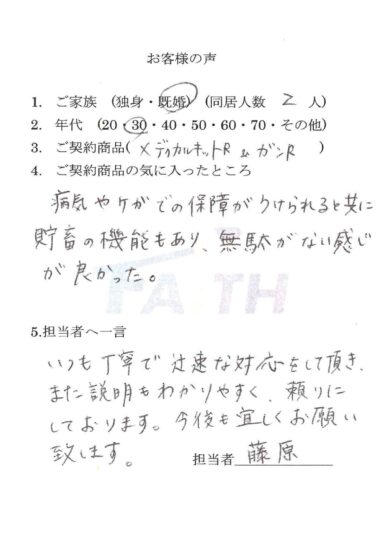 お客様の声
1. ご家族 (独身・既婚) (同居人数 2 人)
2. 年代 (20・30・40・50・60・70・その他)
3. ご契約商品( メディカルキットR & ガンR )
4. ご契約商品の気に入ったところ
病気やケガでの保障がうけられると共に
貯蓄の機能もあり、無駄がない感じ
が良かった。
FAITH
5.担当者へ一言
いつも丁寧で迅速な対応をして頂き、
また説明もわかりやすく、頼りに
しております。今後も宜しくお願い
致します。
担当者 藤原